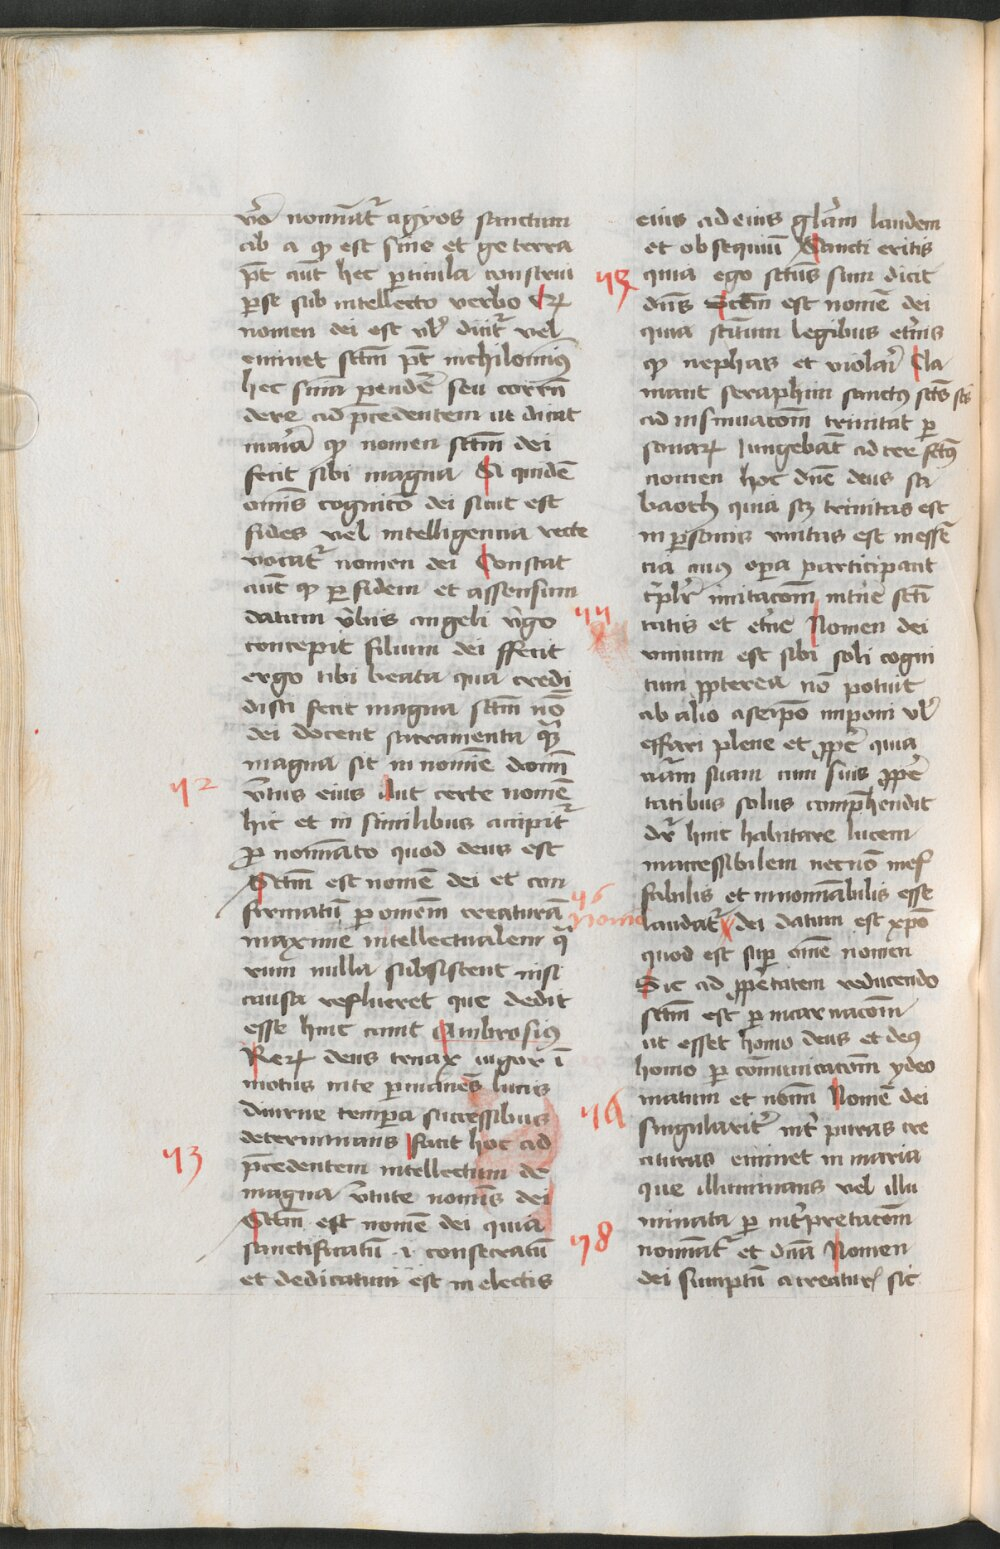 vero nominatr agyos sanctum
ab a qd est sine et ge terra
pt aut hec particula construi
per se sub intellecto verbo
nomen dei est vl dicitr vel
eminet sctm pt nichilominus
hec sentencia pendere seu correspon
dere ad precedentem ut dicat
maria qd nomen sctm dei
fecit sibi magna Si quidem
omnis cognicio dei sicut est
fides vel intelligencia recte
vocatr nomen dei Constat
aut qd per fidem et assensum
datum verbis angeli virgo
concepit filium dei ffecit
ergo tibi beata quia credi
disti fecit magna sctm nomen
dei docent sacramenta
magna sit in nomine domini
72
virtus eius Aut certe nomen
hic et in similibus accipitr
pro nominato quod deus est
Sctm est nomen dei et con
firmatum per omnem creaturam
maxime intellectualem
rum nulla subsistent nisi
causa reflueret que dedit
esse hinc canit Ambrosius
Rerum deus tenax uigor i
motus in te permanens lucis
diurne tempora successibus
determinans Facit hoc ad
73
precedentem intellectum de
magna virtute nominis dei
Sctm est nomen dei quia
sanctificatum .i. consecratum
et dedicatum est in electis
eius ad eius gloriam laudem
et obsequium Sancti eritis
quia ego sctus sum dicit
dns Sctm est nomen dei
quia scitum legibus eternis
qd nephas et violari Cla
mant seraphin sanctus sctus sctus
ad insinuacionem trinitatis per
sonarum Iungebant ad ter sctus
nomen hoc dne deus sa
baoth quia scz trinitas est
in personis vnitas est in essen
cia cuius opera participant
tripliciter imitacionem in trine sancti
tatis et eterne Nomen dei
vnicum est sibi soli cogni
tum propterea non potuit
ab alio a seipso imponi vl
effari plene et proprie quia
naturam suam cum suis proprie
tatibus solus comprehendit
dr hinc habitare lucem
inaccessibilem necnon inef
fabilis et innominabilis esse
76
nomen
laudatr dei datum est xpo
quod est super omne nomen
Sic ad proprietatem reducendo
sctm est per incarnacionem
ut esset homo deus et deus
homo per communicacionem ydeo
matum et nominum Nomen dei
singulariter inter puras cre
aturas eminet in maria
que illuminans vel illu
minata per interpretacionem
78
nominatr et dna Nomen
dei sumptum a creaturis sic